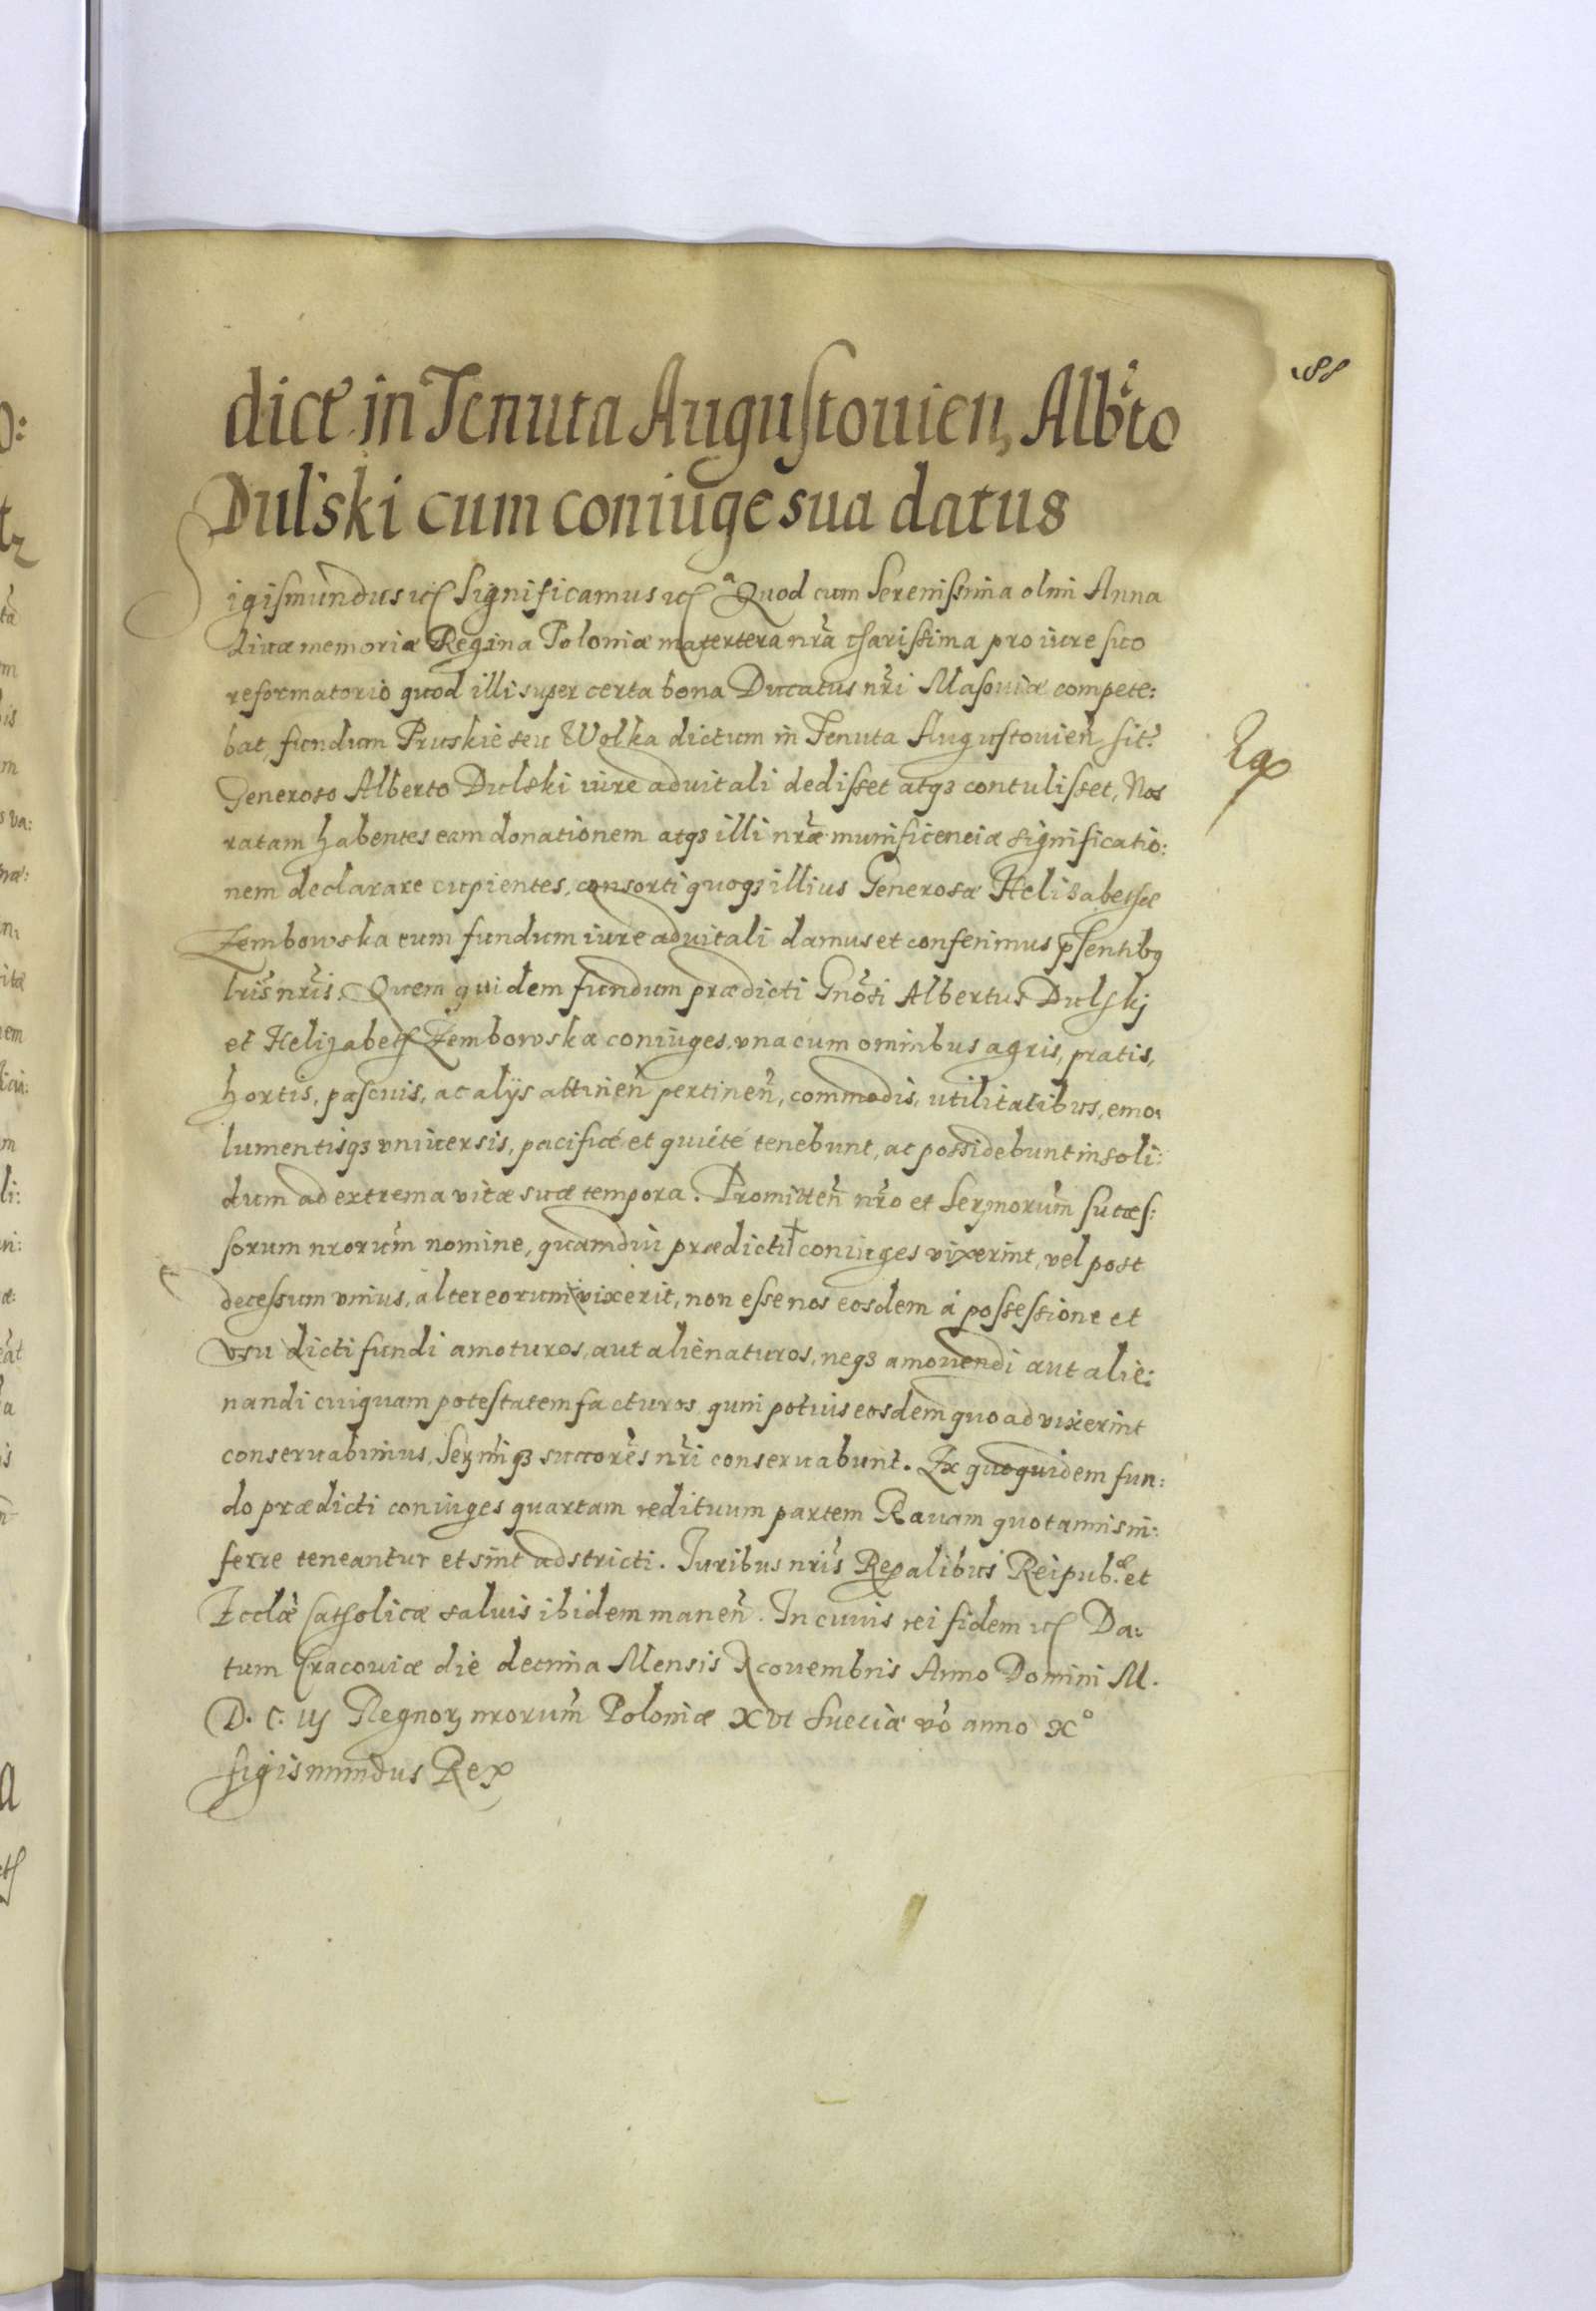 188
dict̃ in Tenuta Augustouien, Albt̃o
Dulski cum coniuge sua datus
Sigismundus etc Significamus etc Quod cum Serenissima olim Anna
diuæ memoriæ Regina Poloniæ matertera nr̃a charissima pro iure suo
reformatorio quod illi super certa bona Ducatus nr̃i Masouiæ compete:
bat, fundum Pruskie seu Wolka dictum in Tenuta Augustouien̄ sit̃
Generoso Alberto Dulski iure aduitali dedisset atqȝ contulisset, Nos
ratam habentes eam donationem atqȝ illi nr̃æ munificenciæ significatio:
nem declarare cupientes, consorti quoqȝ illius Generosæ Helisabethæ
Zembowska eum fundum iure aduitali damus et conferimus pn̄tsentibꝫ
lr̃is nr̃is. Quem quidem fundum prædicti Gnõsi Albertus Dulskj
et Helizabeth Zembowska coniuges, vna cum omnibus agris, pratis,
hortis, pascuis, ac alijs attinen̄ pertinen̄, commodis, utilitatibus, emo:
lumentisqȝ vniuersis, pacificé et quiété tenebunt, ac possidebunt in soli:
dum ad extrema vitæ suæ tempora. Promitten̄ nr̃o et Sermorum̃ succes:
sorum nrorum̃ nomine, quamdiu prædicti coniuges vixerint, vel post
decessum vnius, alter eorum vixerit, non esse nos eosdem á possessione et
vsu dicti fundi amoturos, aut alienaturos, neqȝ amouendi aut alie:
nandi cuiquam potestatem facturos, quin potius eosdem quoad vixerint
conseruabimus, Sermiqȝ succores̃ nr̃i conseruabunt. Ex quo quidem fun:
do prædicti coniuges quartam redituum partem Rauam quotannis in:
ferre teneantur et sint adstricti. Juribus nr̃is Regalibus Reipub.æ et
Ecclæ̃ Catholicæ saluis ibidem manen̄. In cuius rei fidem etc Da:
tum Cracouiæ die decima Mensis Nouembris Anno Domini M.
D. C. iij Regnorꝫ nrorum̃ Poloniæ XVI Sueciæ vo᷃ anno X°
Sigismundus Rex